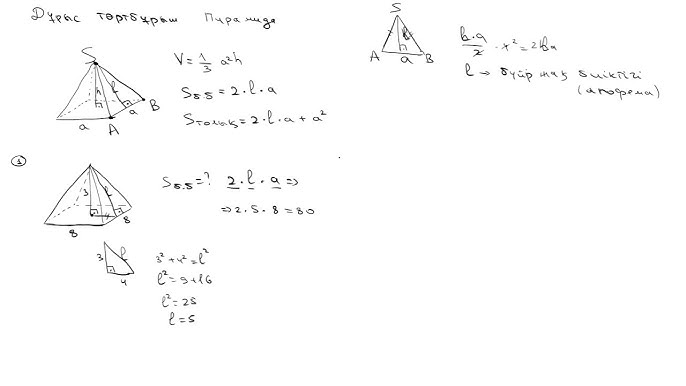 Дұрыс төртбұрыш Пирамида
S
h
l
B
a
a
A
V = 1/3 a²h
Sб.б = 2·l·a
Sтолық = 2·l·a + a²
S
l
A
a
B
b·a/2 · x² = 2la
l → бүйір жақ биіктігі
(апофема)
1
3
l
4
8
8
Sб.б = ? 2·l·a ⇒
⇒ 2·5·8 = 80
3
l
4
3² + 4² = l²
l² = 9 + 16
l² = 25
l = 5